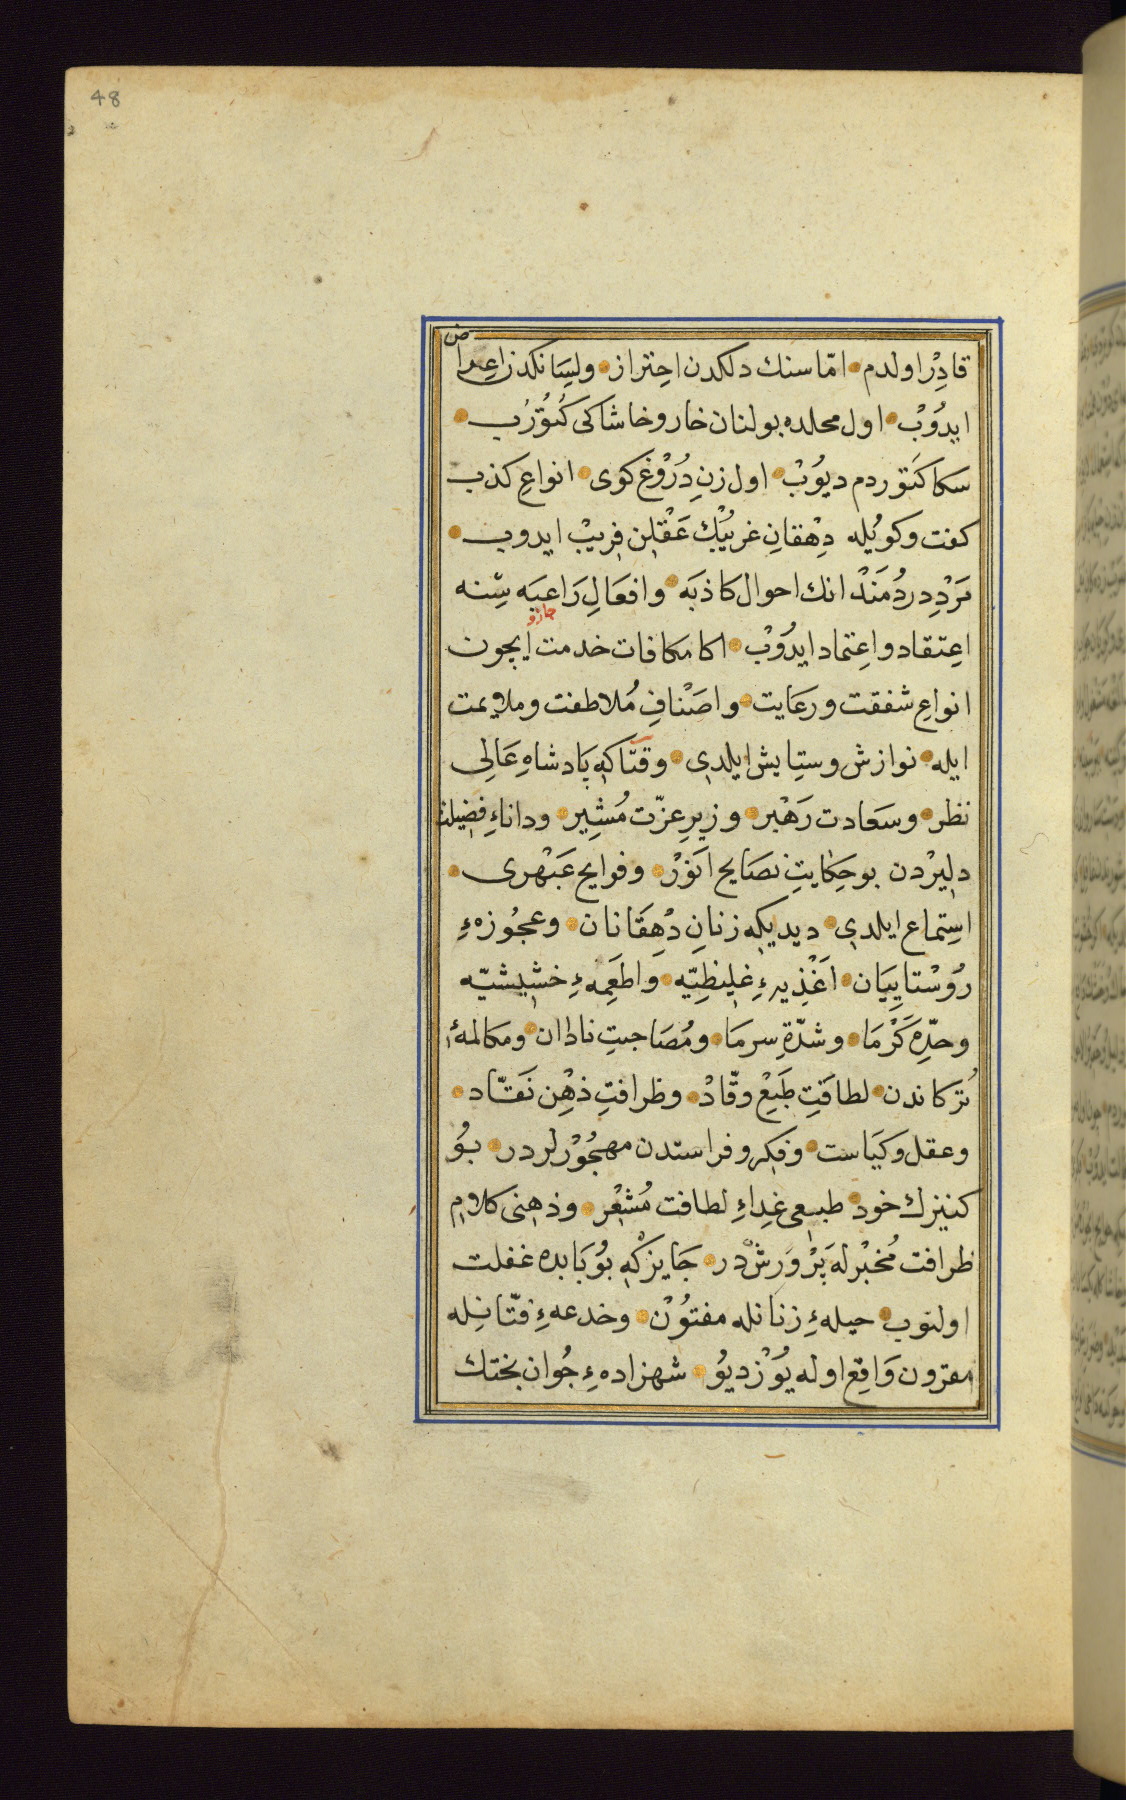 48
قادِرْ اولدم • امّا سنك دلكدن احِتراز • ولسِانكدن اعِراض
ايدُوْبْ • اول محلده بولنان خار وخاشاكى كُتوُرُب •
سكا كتوردم ديوُبْ • اول زنِ دُرُوْغ كوى • انواعِ كذب
كفت وكويُله دِهْقانِ غريبُكْ عَقْلِن فِريبْ ايدوب •
مَرْدِ دردُمَنَدْ انك احوال كاذبَه • وافعَالِ رَاعِبَه سِّنه
جازو
اعِتقاد واعِتماد ايدُوْبْ • اكا مكافات خدمت ايچون
انواعِ شفقت ورعَايت • واصَنْافِ مُلاطفت وملايمت
ايله • نوازش وستِايش ايلدى • وقتاكه پَادشاهِ عَالِى
نظر • وسَعادت رَهْبر • وزيرِ عزّت مُشِير • وداناءِ فضيلت
دلِيرْدن بوحِكايتِ نصَايح انَوْرْ • وفوايح عَبْهرى •
استِماع ايلدى • ديديكه زنانِ دْهِقَانان • وعجُوزهءِ
رُوْسْتايِيَان • اغَذِيهءِ غليظِيّه • واطعِمهءِ خشيشيّه
وحدِّه كَرْمَا • وشدّةِ سرمَا • ومُصَاحبتِ نادان • ومكالمهٔ
تُركاندن • لطافَتِ طَبِعْ وقّادْ • وظرافتِ ذهِْنِ نَقّاد •
وعقل وكيَاست • وفكر وفراستدن مهجُوْرلردر • بوُ
كنيزك خود • طبعى غِداءِ لطافت مُشْعْر • وذهِنى كلامِ
ظرافت مُخبْرلَه پَرْوَرشْ در • جَايزكه بوُبَابده غفلت
اولنوب • حيلهءِ زنانله مفتُوْن • وخدعهءِ فتّانِله
مقرون وَاقِع اوله يوُزديوُ • شهزادهءِ جُوان بختك